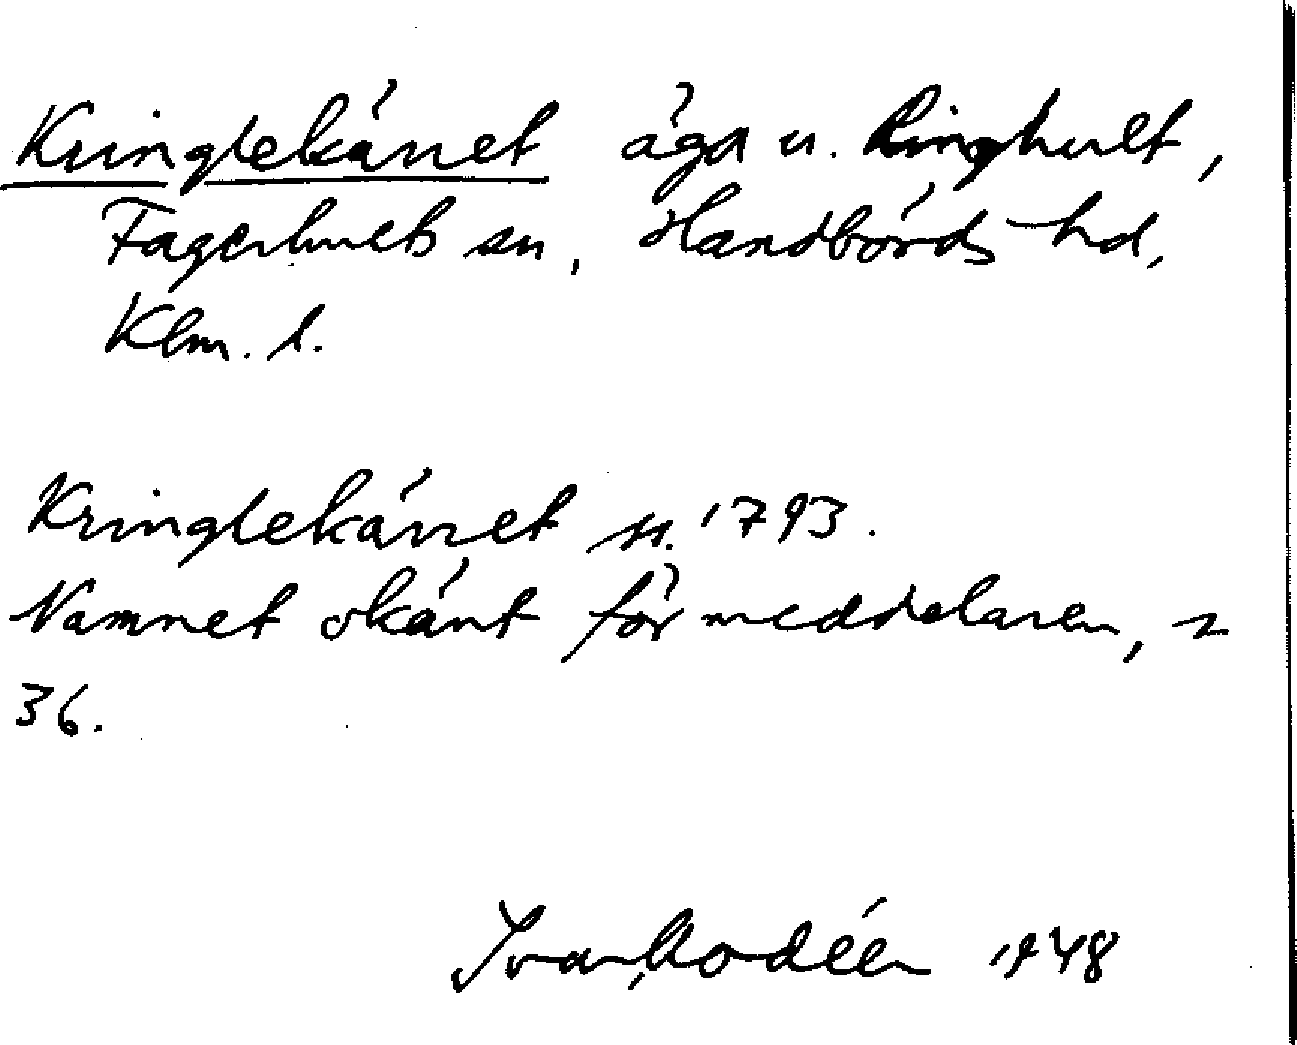 Kringlekärret äga u. Ringhult,
Fagerhults sn, Handbörds hd,
Klm. l.
Kringlekärret 1793.
Namnet okänt för meddelaren,
36.
Ivar Modéer 1948